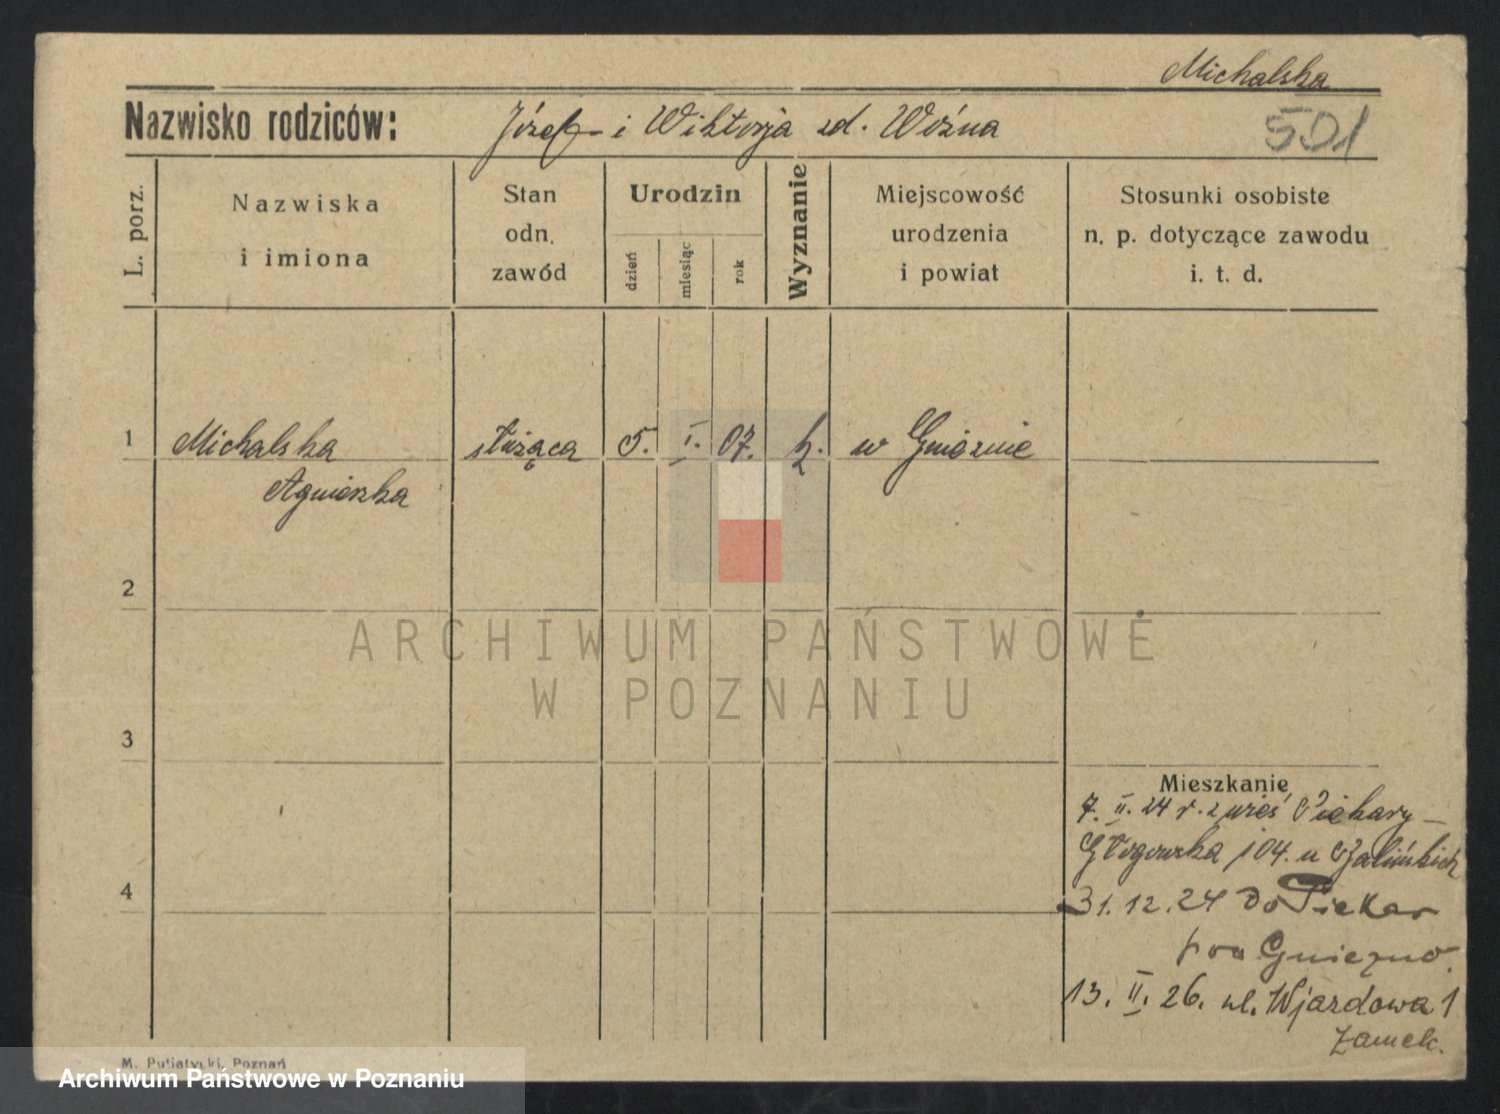 Michalska
Nazwisko rodziców: Józef i Wiktorja zd. Woźna
501
L. porz.
Nazwiska
i imiona
Stan
odn.
zawód
Urodzin
dzień
miesiąc
rok
Wyznanie
Miejscowość
urodzenia
i powiat
Stosunki osobiste
n. p. dotyczące zawodu
i. t. d.
1 Michalska służąca 5. I. 07. k. w Gnieźnie
Agnieszka
2
3
4
ARCHIWUM PAŃSTWOWE
W POZNANIU
Mieszkanie
7. II. 24 r. z wieś Piekary –
Głogowska 104. u
31. 12. 24 Do Piekar
pow Gniezno.
13. II. 26. ul. Wjazdowa 1
Zamek.
M. Putiatycki, Poznań
Archiwum Państwowe w Poznaniu